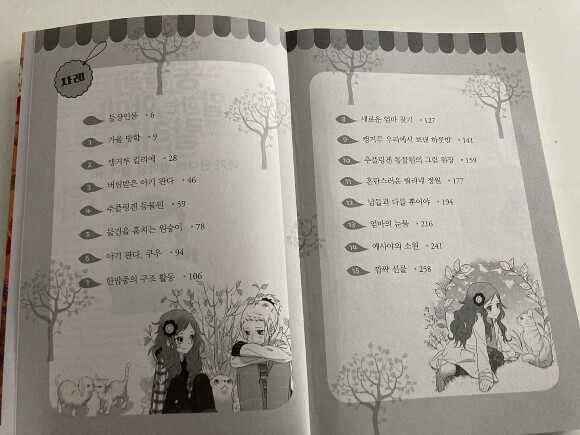 차례
등장인물 • 6
1 가을 방학 • 9
2 캥거루 킬리에 • 28
3 버림받은 아기 판다 • 46
4 주플링겐 동물원 • 59
5 물건을 훔치는 원숭이 • 78
6 아기 판다, 쿠우 • 94
7 한밤중의 구조 활동 • 106
8 새로운 엄마 찾기 • 127
9 캥거루 우리에서 보낸 하룻밤 • 141
10 주플링겐 동물원의 그린 원장 • 159
11 혼란스러운 정원 • 177
12 남들과 다를 뿐이야 • 194
13 엄마의 눈물 • 216
14 예사야의 소원 • 241
15 깜짝 선물 • 258